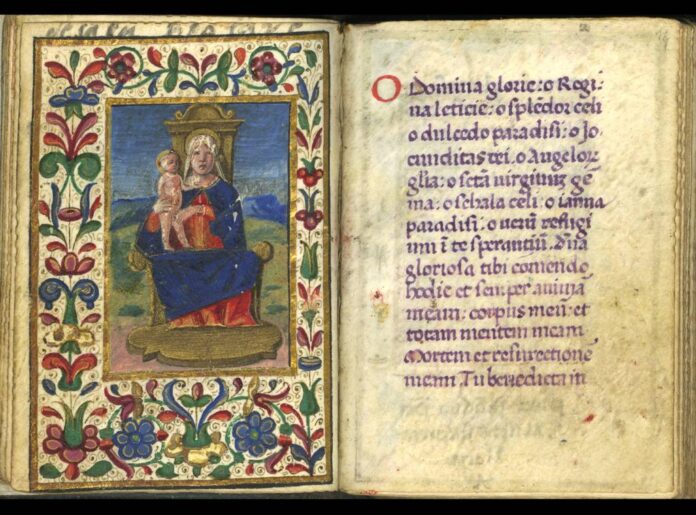 O Domina glorie: o Regi
na leticie: o spledor celi
o dulcedo paradisi: o Jo
cunditas rei. o Angelor
glia: o sctā virginū ge
ma: o schala celi: o ianua
paradisi: o uerū refugi
um ī te sperantiū. dn̄a
gloriosa tibi comendo
hodie et semper animā
meam: corpus meū: et
totam mentem meam
Mortem et resurectione
Tu benedicta in